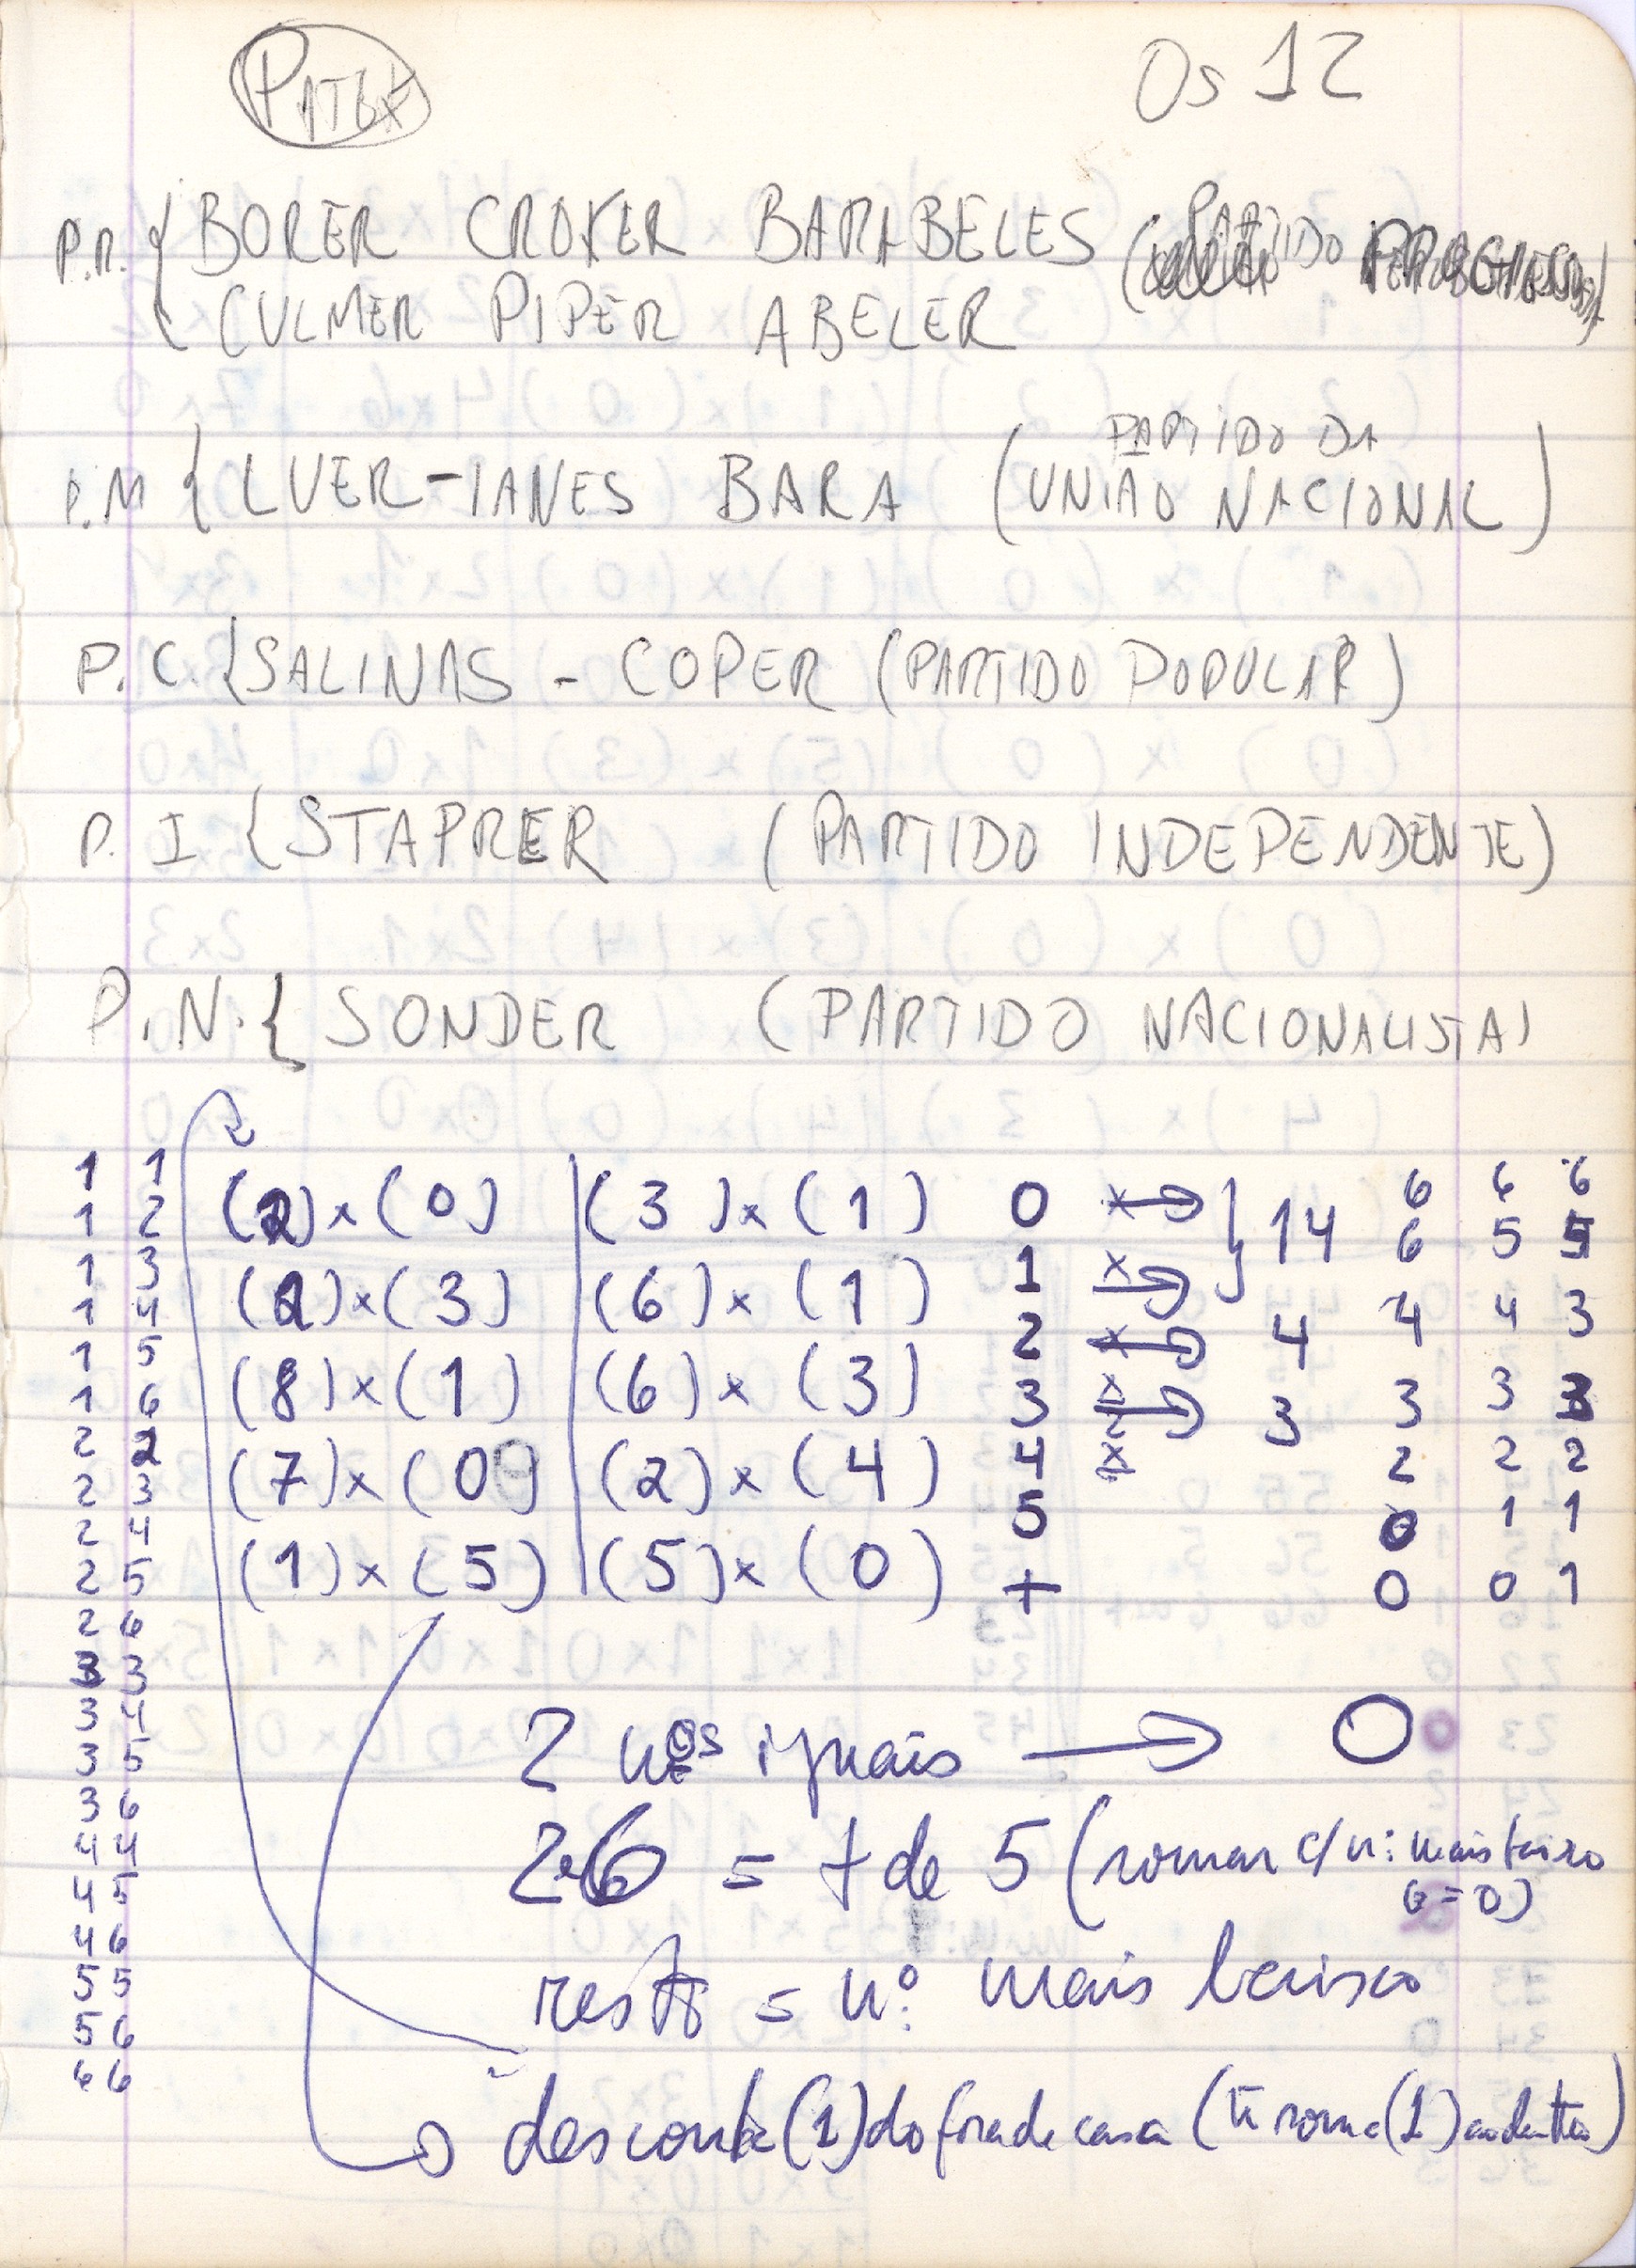 Os 12
P.R. { BORER CROXER BARABELES (PARTIDO
CULMER PIPER ABELER
P.M { LUER-IANES BARA (PARTIDO DA
UNIÃO NACIONAL)
P.C. { SALINAS - COPER (PARTIDO POPULAR)
P. I { STAPRER (PARTIDO INDEPENDENTE)
P.N. { SONDER (PARTIDO NACIONALISTA)
1 1
1 2
1 3
1 4
1 5
1 6
2 2
2 3
2 4
2 5
2 6
3 3
3 4
3 5
3 6
4 4
4 5
4 6
5 5
5 6
6 6
(2) x (0) | (3) x (1)
(2) x (3) | (6) x (1)
(8) x (1) | (6) x (3)
(7) x (0) | (2) x (4)
(1) x (5) | (5) x (0)
0 x → } 14
1 x →
2 x → 4
3 x → 3
4 x
5
+
6 6 6
6 5 5
4 4 3
3 3 3
2 2 2
0 1 1
0 0 1
2 nºs iguais → 0
26 = + de 5 (somar c/ nº mais baixo
6=0)
resto = nº mais baixo
desconta (1) do fora de casa (ou soma (1) ao dentro)